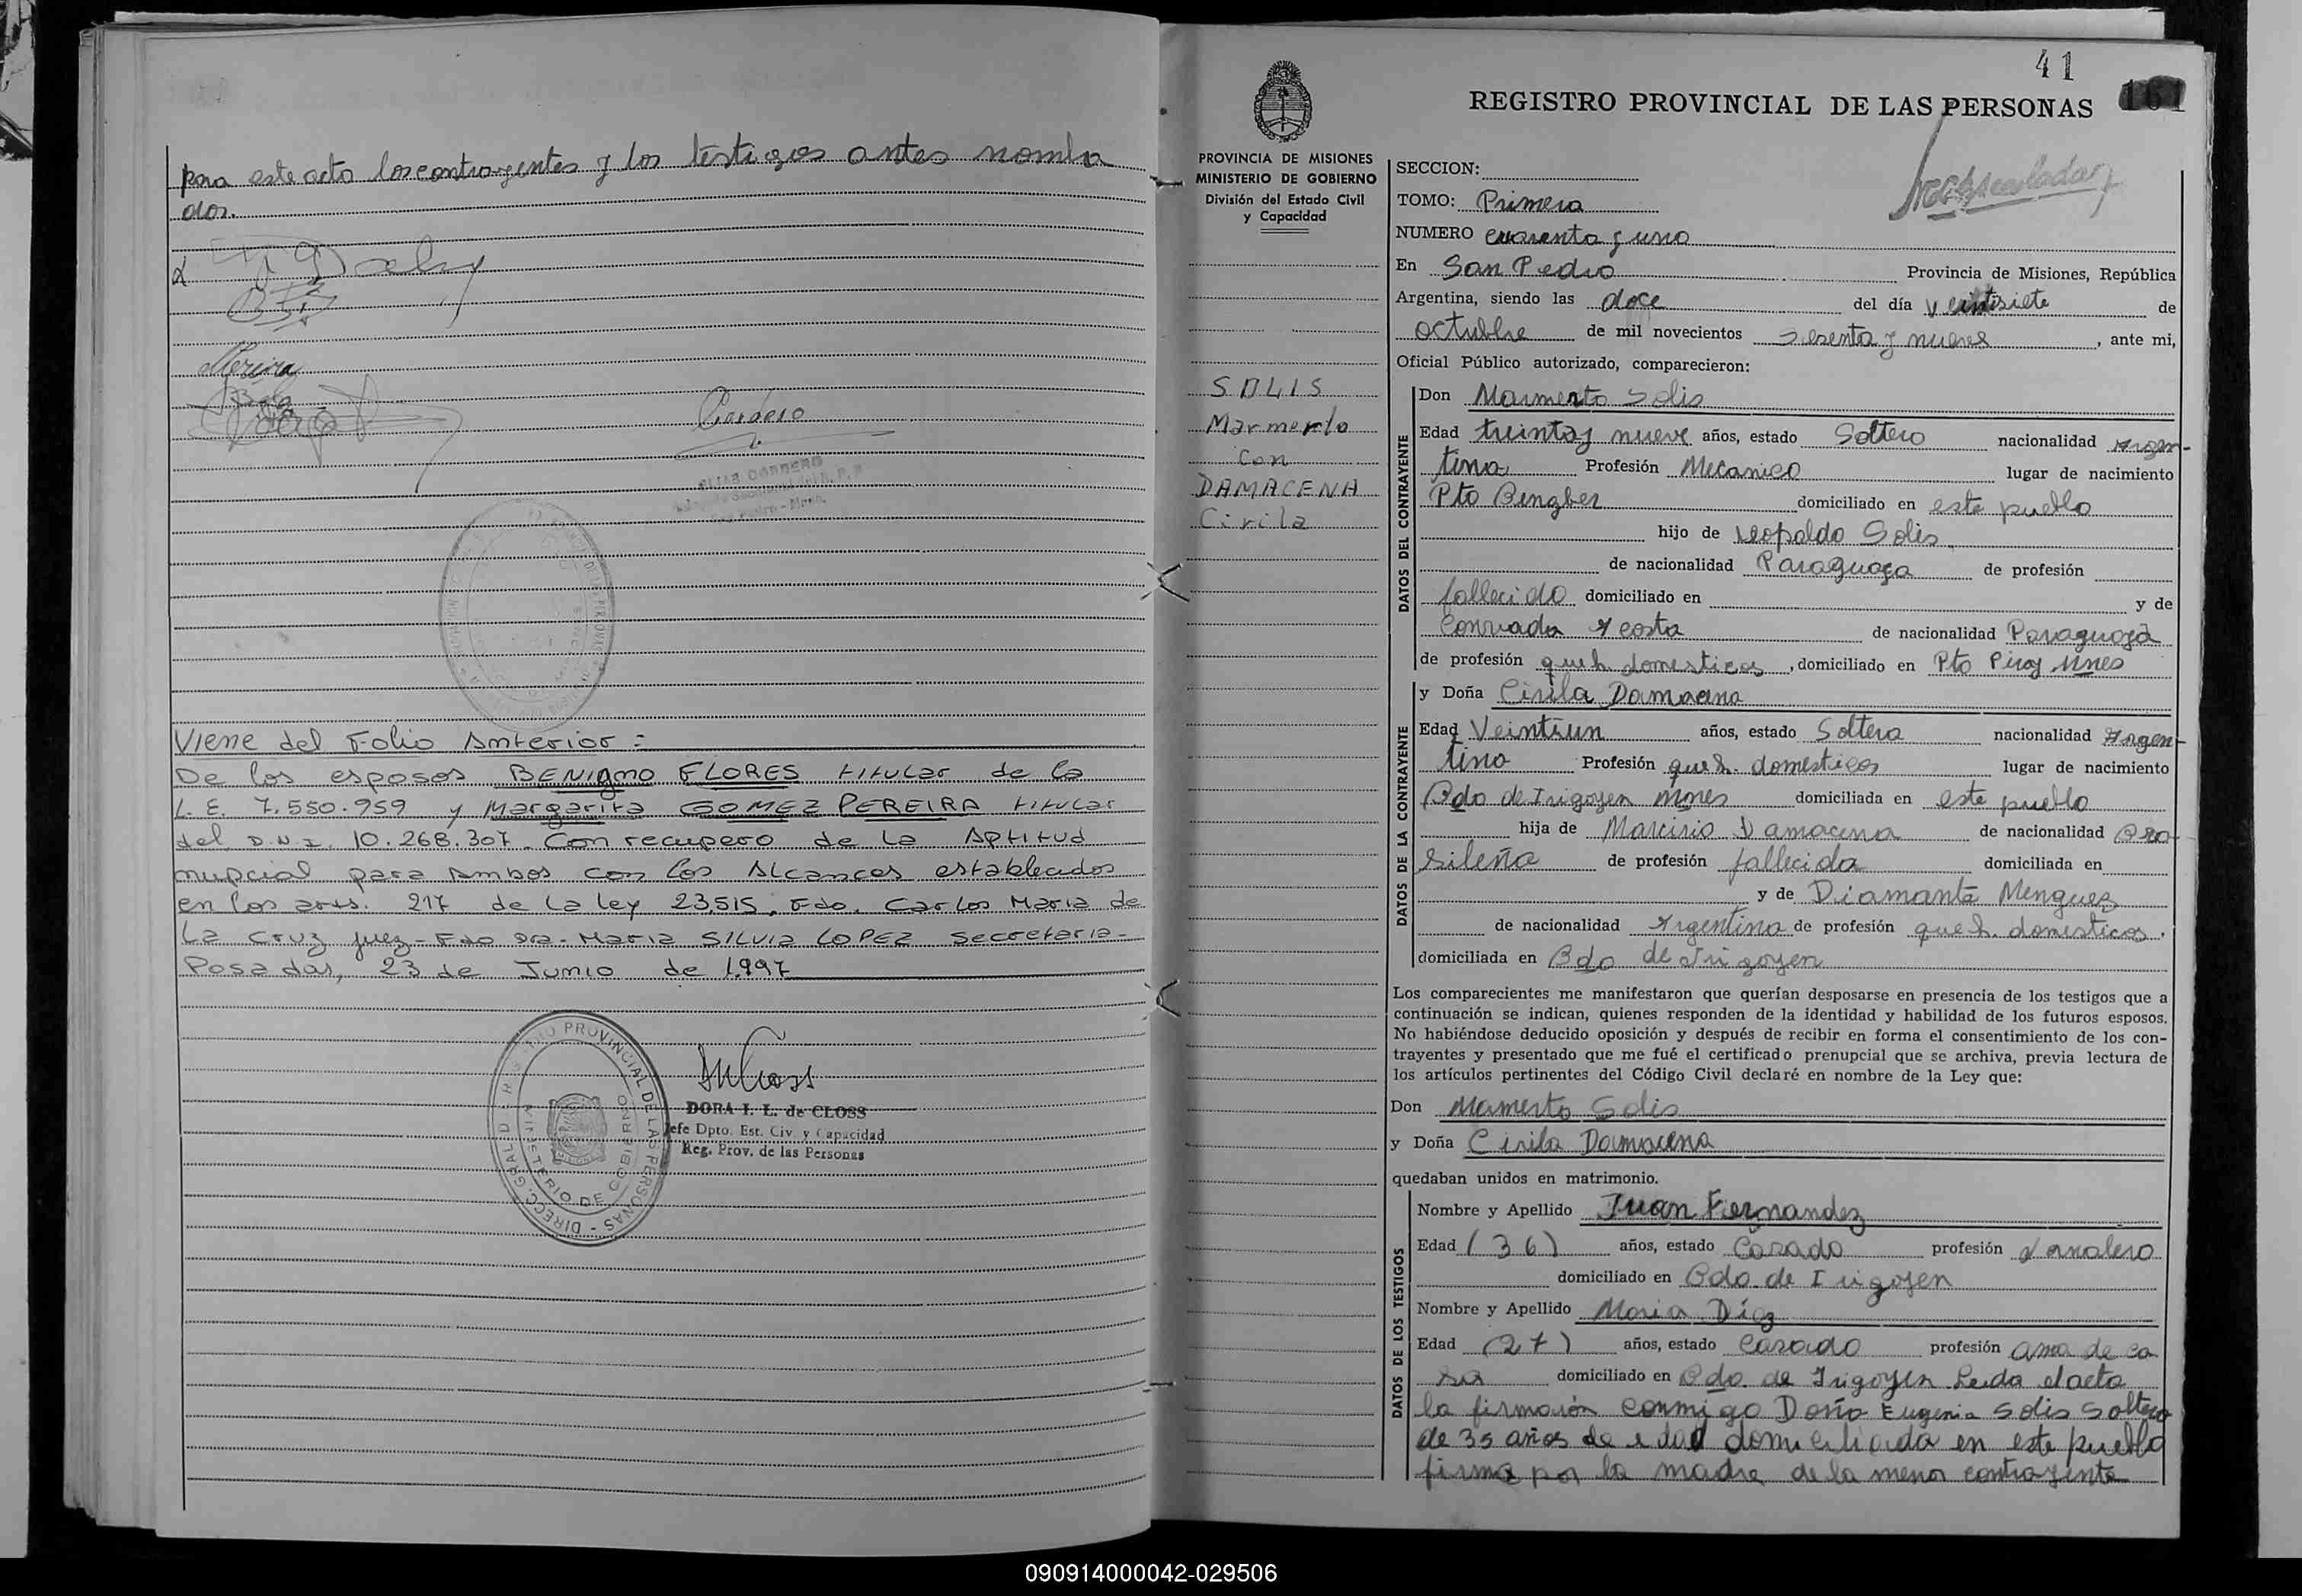 para este acto los contrayentes y los testigos antes nombra
dos.
Cordero
ELIAS CORDERO
Viene del Folio Anterior =
De los esposos BENIgno FLORES titular de la
L. E. 7.550.959 y Margarita GOMEZ PEREIRA titular
del D.N.I. 10.268.307. Con recupero de la Aptitud
nupcial para Ambos con los Alcances establecidos
en los arts. 217 de la ley 23.515. Fdo. Carlos Maria de
La Cruz Juez - Fdo Dra. Maria SILVIA LOPEZ Secretaria-
Posadas, 23 de Junio de 1.997
DORA I. L. de CLOSS
Jefe Dpto. Est. Civ. y Capacidad
Reg. Prov. de las Personas
REGISTRO PROVINCIAL DE LAS PERSONAS - DIRECC. GRAL. DEL
MINISTERIO DE GOBIERNO
41
161
REGISTRO PROVINCIAL DE LAS PERSONAS
PROVINCIA DE MISIONES
MINISTERIO DE GOBIERNO
División del Estado Civil
y Capacidad
SOLIS
Marmerto
Con
DAMACENA
Cirila
SECCION:
TOMO: Primero
NUMERO cuarenta y uno
En San Pedro Provincia de Misiones, República
Argentina, siendo las doce del día veintisiete de
octubre de mil novecientos sesenta y nueve, ante mi,
Oficial Público autorizado, comparecieron:
DATOS DEL CONTRAYENTE
Don Marmerto Solis
Edad treinta y nueve años, estado Soltero nacionalidad Argen-
tina Profesión Mecanico lugar de nacimiento
Pto Bengber domiciliado en este pueblo
hijo de Leopoldo Solis
de nacionalidad Paraguaya de profesión
fallecido domiciliado en y de
Conrada Acosta de nacionalidad Paraguaya
de profesión queh. domesticos, domiciliado en Pto Piray Mnes
DATOS DE LA CONTRAYENTE
y Doña Cirila Damacena
Edad Veintiun años, estado Soltera nacionalidad Argen-
tina Profesión queh. domesticos lugar de nacimiento
Bdo de Irigoyen Mnes domiciliada en este pueblo
hija de Marcirio Damacena de nacionalidad Bra-
sileña de profesión fallecida domiciliada en
y de Diamanta Menguez
de nacionalidad Argentina de profesión queh. domesticos,
domiciliada en Bdo de Irigoyen
Los comparecientes me manifestaron que querían desposarse en presencia de los testigos que a
continuación se indican, quienes responden de la identidad y habilidad de los futuros esposos.
No habiéndose deducido oposición y después de recibir en forma el consentimiento de los con-
trayentes y presentado que me fué el certificado prenupcial que se archiva, previa lectura de
los artículos pertinentes del Código Civil declaré en nombre de la Ley que:
Don Mamerto Solis
y Doña Cirila Damacena
quedaban unidos en matrimonio.
DATOS DE LOS TESTIGOS
Nombre y Apellido Juan Fernandez
Edad (36) años, estado Casado profesión Jornalero
domiciliado en Bdo. de Irigoyen
Nombre y Apellido Maria Díaz
Edad (27) años, estado Casado profesión ama de ca
sa domiciliado en Bdo. de Irigoyen Leida el acta
la firmarón conmigo Doña Eugenia Solis Soltera
de 35 años de edad domiciliada en este pueblo
firma por la madre de la menor contrayente
090914000042-029506